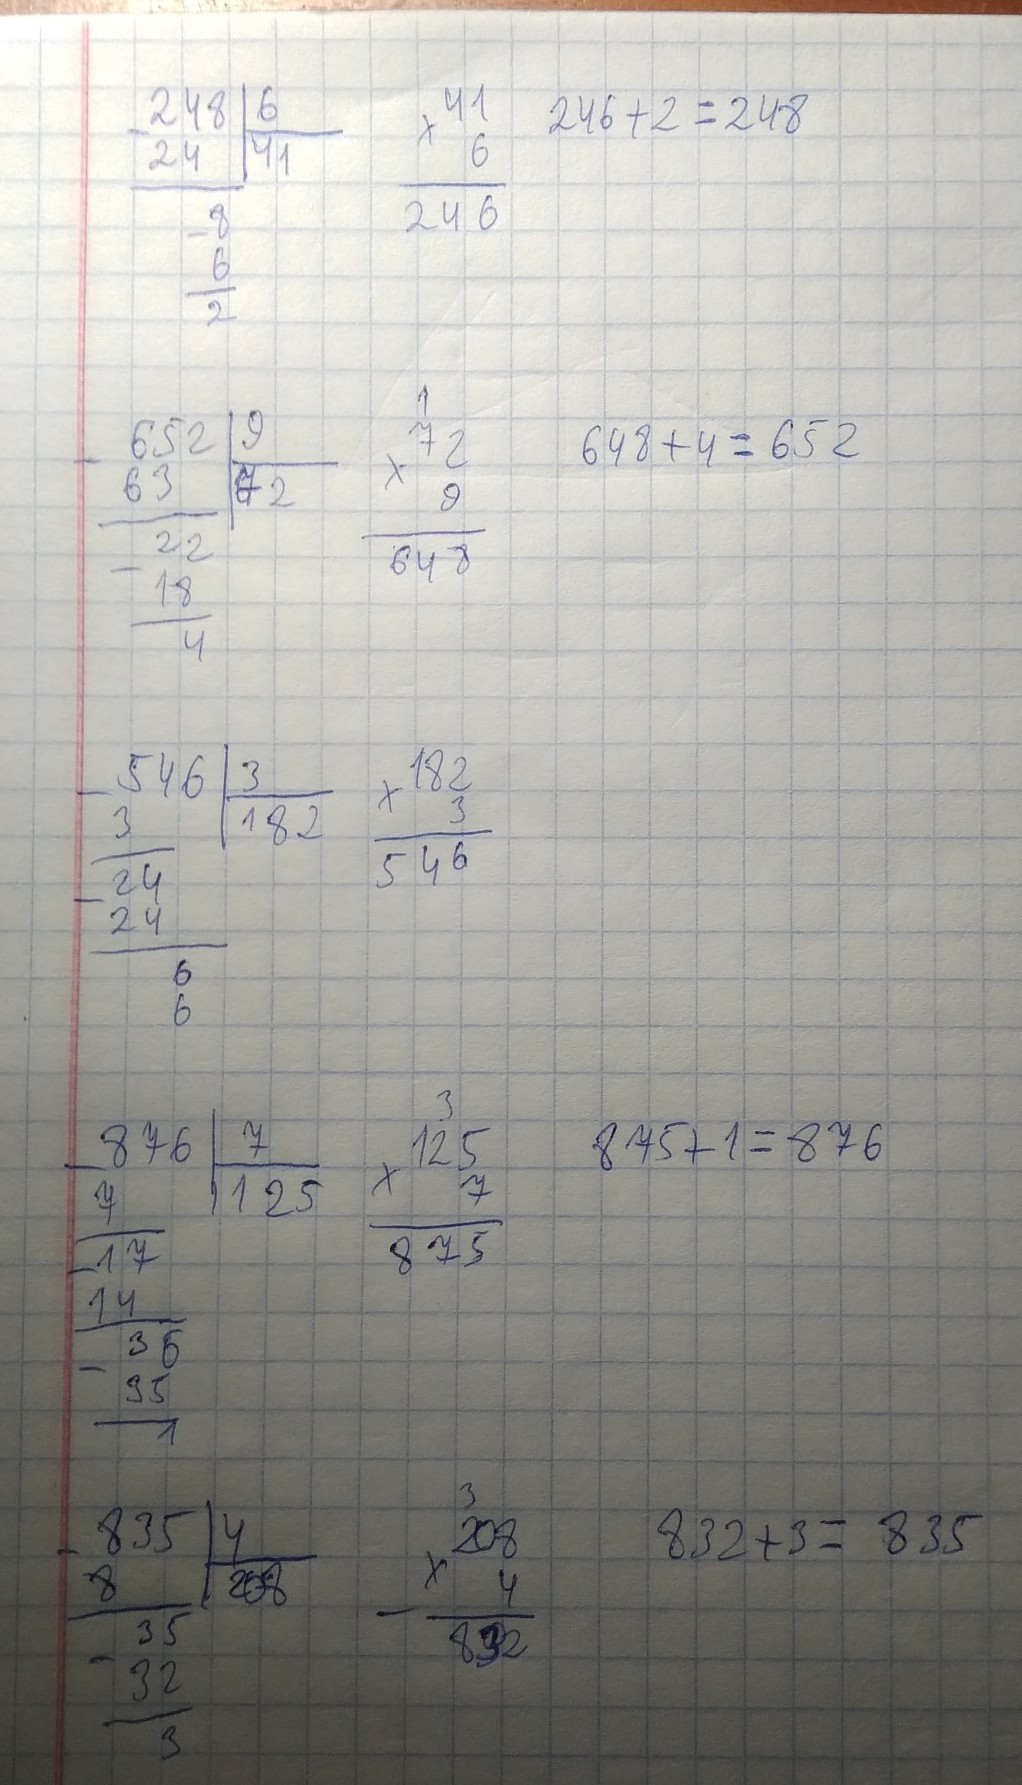 248 6 41 246+2=248
- 24 41 × 6
-8 246
6
2
1
652 9 72 648+4=652
- 63 72 × 9
- 22 648
18
4
- 546 3 182
3 182 × 3
- 24 546
24
6
6
3
- 876 7 125 875+1=876
7 125 × 7
- 17 875
14
- 36
35
1
3
- 835 4 208 832+3=835
8 208 × 4
- 35 - 832
32
3